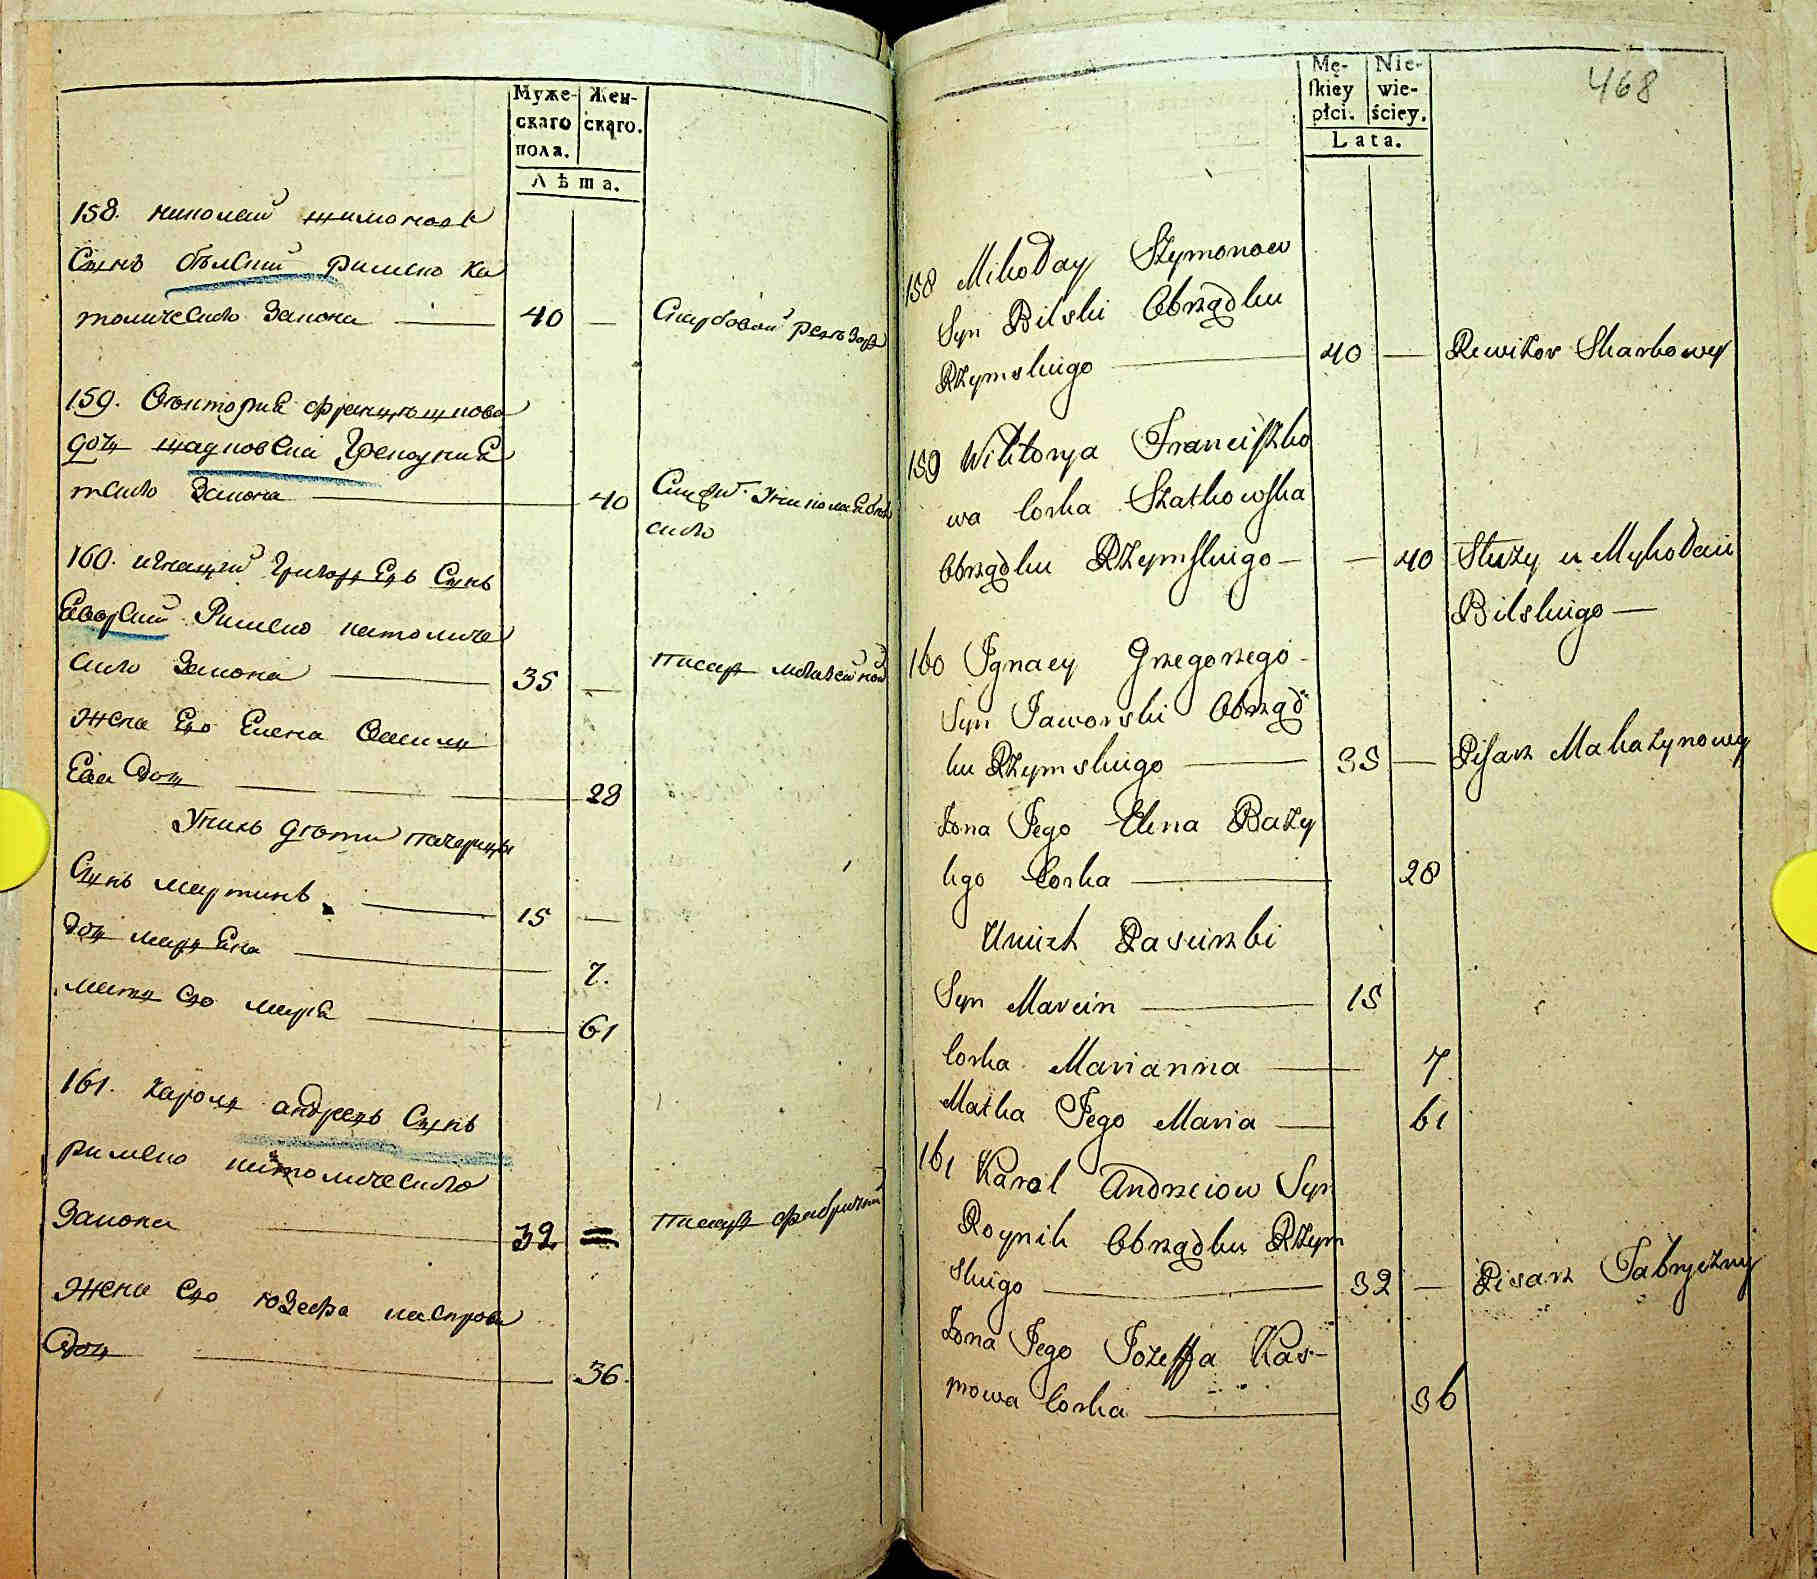 Муже-
скаго
пола.
Жен-
скаго.
Лѣта.
158. николай шимоновъ
Сынъ бѣлский римско ка
толическаго Закона — 40 —
Скарбовый ревѣзоръ
159. францѣшкова
дочь шадковска
скаго Закона — 40
160. игнацый Григорьевъ Сынъ
Еворский Римско католиче
скаго Закона — 35 —
Писарь
жена Его Елена Василь
Ева дочь — 28
Унихъ дѣти пачерицы
Сынъ мартинъ — 15 —
дочь марьЕна — 7.
мать Его марѣ — 61
161. Кароль андреевъ Сынъ
римско католическаго
Закона — 32 =
Писарь фабричный
жена Его юзефа каспрова
дочь — 36.
468
Mę-
skiey
płci.
Nie-
wie-
ściey.
Lata.
158 Mikołay Szymonow
Syn Bilski Obrządku
Rzymskiego — 40 —
Rewizor Skarbowy
159 Wiktorya Franciszko
wa Corka Szatkowska
Obrządku Rzymskiego — — 40
Służy u Mykołaia
Bilskiego —
160 Ignacy Grzegorzego -
Syn Jaworski Obrząd
ku Rzymskiego — 35 —
Pisarz Makazynowy
Żona Jego Elena Bazy
lego Corka — 28
Unich Pasierzbi
Syn Marcin — 15
Corka Marianna — 7
Matka Jego Maria — 61
161 Karol Andrzeiow Syn
Roynik Obrządku Rzym
skiego — 32 —
Pisarz Fabryczny
Żona Jego Jozeffa Kas-
prowa Corka — 36